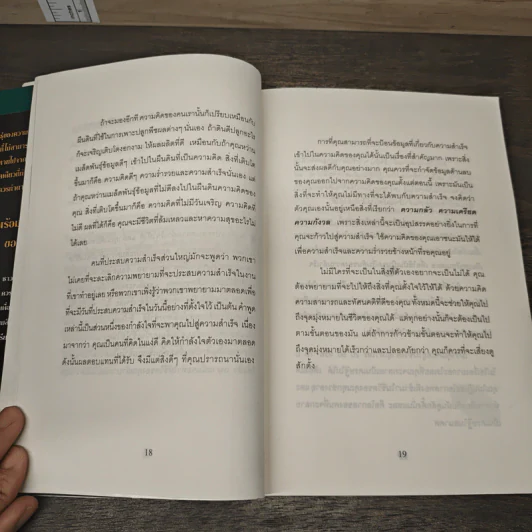 ถ้าจะมองอีกที ความคิดของคนเรานั้นก็เปรียบเหมือนกับ
ผืนดินที่ใช้ในการเพาะปลูกพืชผลต่างๆ นั่นเอง ถ้าดินดีปลูกอะไร
ก็จะเจริญเติบโตงอกงาม ให้ผลผลิตที่ดี เหมือนกับถ้าคุณหว่าน
เมล็ดพันธุ์ข้อมูลดีๆ เข้าไปในผืนดินที่เป็นความคิด สิ่งที่เติบโต
ขึ้นมาก็คือ ความคิดดีๆ ความร่ำรวยและความสำเร็จนั่นเอง แต่
ถ้าคุณหว่านเมล็ดพันธุ์ข้อมูลที่ไม่ดีลงไปในผืนดินความคิดของ
คุณ สิ่งที่เติบโตขึ้นมาก็คือ ความคิดที่ไม่มีวันเจริญ ความคิดที่
ไม่ดี ผลที่ได้ก็คือ คุณจะมีชีวิตที่ล้มเหลวและหาความสุขอะไรไม่
ได้เลย
คนที่ประสบความสำเร็จส่วนใหญ่มักจะพูดว่า พวกเขา
ไม่เคยที่จะละเลิกความพยายามที่จะประสบความสำเร็จในงาน
ที่เขาทำอยู่เลย หรือพวกเขาเพิ่งรู้ว่าพวกเขาพยายามมาตลอดเพื่อ
ที่จะมีวันที่ประสบความสำเร็จในวันนี้อย่างที่ตั้งใจไว้ เป็นต้น คำพูด
เหล่านี้เป็นส่วนหนึ่งของกำลังใจที่จะพาคุณไปสู่ความสำเร็จ เนื่อง
มาจากว่า คุณเป็นคนที่คิดในแง่ดี คิดให้กำลังใจตัวเองมาตลอด
ดังนั้นผลตอบแทนที่ได้รับ จึงมีแต่สิ่งดีๆ ที่คุณปรารถนานั่นเอง
18
การที่คุณสามารถที่จะป้อนข้อมูลที่เกี่ยวกับความสำเร็จ
เข้าไปในความคิดของคุณได้นั้นเป็นเรื่องที่สำคัญมาก เพราะสิ่ง
นั้นจะส่งผลดีกับคุณอย่างมาก คุณควรที่จะกำจัดข้อมูลด้านลบ
ของคุณออกไปจากความคิดของคุณตั้งแต่ตอนนี้ เพราะมันเป็น
สิ่งที่จะทำให้คุณไม่มีทางที่จะได้พบกับความสำเร็จ จงคิดว่า
ตัวคุณเองนั้นอยู่เหนือสิ่งที่เรียกว่า ความกลัว ความเครียด
ความกังวล เพราะสิ่งเหล่านี้จะเป็นอุปสรรคอย่างยิ่งในการที่
คุณจะก้าวไปสู่ความสำเร็จ ใช้ความคิดของคุณเอาชนะมันให้ได้
เพื่อความสำเร็จและความร่ำรวยข้างหน้าที่รอคุณอยู่
ไม่มีใครที่จะเป็นในสิ่งที่ตัวเองอยากจะเป็นไม่ได้ คุณ
ต้องพยายามที่จะไปให้ถึงสิ่งที่คุณตั้งใจไว้ให้ได้ ด้วยความคิด
ความสามารถและทัศนคติที่ดีของคุณ ทั้งหมดนี้จะช่วยให้คุณไป
ถึงจุดมุ่งหมายในชีวิตของคุณได้ แต่ทุกอย่างนั้นก็จะต้องเป็นไป
ตามขั้นตอนของมัน แต่ถ้าการก้าวข้ามขั้นตอนจะทำให้คุณไป
ถึงจุดมุ่งหมายได้เร็วกว่าและปลอดภัยกว่า คุณก็ควรที่จะเสี่ยงดู
สักตั้ง
19